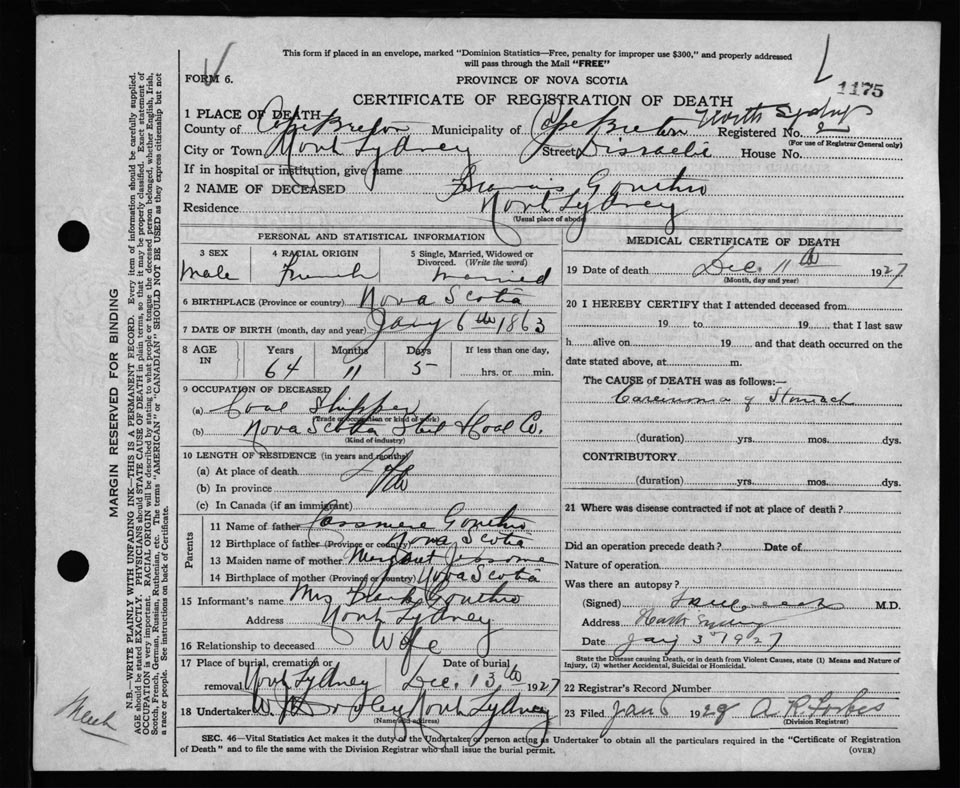 This form if placed in an envelope, marked "Dominion Statistics—Free, penalty for improper use $300," and properly addressed
will pass through the Mail "FREE"
FORM 6.
PROVINCE OF NOVA SCOTIA
1175
CERTIFICATE OF REGISTRATION OF DEATH
1 PLACE OF DEATH
North Sydney
County of Cape Breton Municipality of Cape Breton Registered No. 2
(For use of Registrar General only)
City or Town North Sydney Street Disraeli House No.
If in hospital or institution, give name
2 NAME OF DECEASED Francis Gouthro
Residence North Sydney
(Usual place of abode)
PERSONAL AND STATISTICAL INFORMATION
3 SEX 4 RACIAL ORIGIN 5 Single, Married, Widowed or Divorced. (Write the word)
Male French Married
6 BIRTHPLACE (Province or country) Nova Scotia
7 DATE OF BIRTH (month, day and year) Jany 6th 1863
8 AGE IN Years Months Days If less than one day,
64 11 5 hrs. or min.
9 OCCUPATION OF DECEASED
(a) Coal Shipper
(Trade or occupation or kind of work)
(b) Nova Scotia Steel & Coal Co.
(Kind of industry)
10 LENGTH OF RESIDENCE (in years and months)
(a) At place of death Life
(b) In province
(c) In Canada (if an immigrant)
Parents
11 Name of father Gouthro
12 Birthplace of father (Province or country) Nova Scotia
13 Maiden name of mother Margaret Jessome
14 Birthplace of mother (Province or country) Nova Scotia
15 Informant's name Mrs Frank Gouthro
Address North Sydney
16 Relationship to deceased Wife
17 Place of burial, cremation or removal North Sydney Date of burial Dec. 13th 1927
18 Undertaker W. J. Dooley North Sydney
(Name and address)
MEDICAL CERTIFICATE OF DEATH
19 Date of death Dec. 11th 1927
(Month, day and year)
20 I HEREBY CERTIFY that I attended deceased from
19 to 19, that I last saw
h alive on 19 and that death occurred on the
date stated above, at m.
The CAUSE of DEATH was as follows:—
Carcinoma of Stomach
(duration) yrs. mos. dys.
CONTRIBUTORY
(duration) yrs. mos. dys.
21 Where was disease contracted if not at place of death?
Did an operation precede death? Date of
Nature of operation
Was there an autopsy?
(Signed) M.D.
Address North Sydney
Date Jany 3rd 1927
State the Disease causing Death, or in death from Violent Causes, state (1) Means and Nature of
Injury, (2) whether Accidental, Suicidal or Homicidal.
22 Registrar's Record Number
23 Filed Jan 6 1928 A. R. Forbes
(Division Registrar)
SEC. 46—Vital Statistics Act makes it the duty of the Undertaker or person acting as Undertaker to obtain all the particulars required in the "Certificate of Registration
of Death" and to file the same with the Division Registrar who shall issue the burial permit.
(OVER)
MARGIN RESERVED FOR BINDING
N.B.—WRITE PLAINLY WITH UNFADING INK—THIS IS A PERMANENT RECORD. Every item of information should be carefully supplied.
AGE should be stated EXACTLY. PHYSICIANS should STATE CAUSE OF DEATH in plain terms, so that it may be properly classified. Exact statement of
OCCUPATION is very important. RACIAL ORIGIN will be described by stating to what people or tongue the deceased person belonged, whether English, Irish,
Scotch, French, German, Russian, Ruthenian, etc. The terms "AMERICAN" or "CANADIAN" SHOULD NOT BE USED as they express citizenship but not
a race or people. See instructions on back of Certificate.